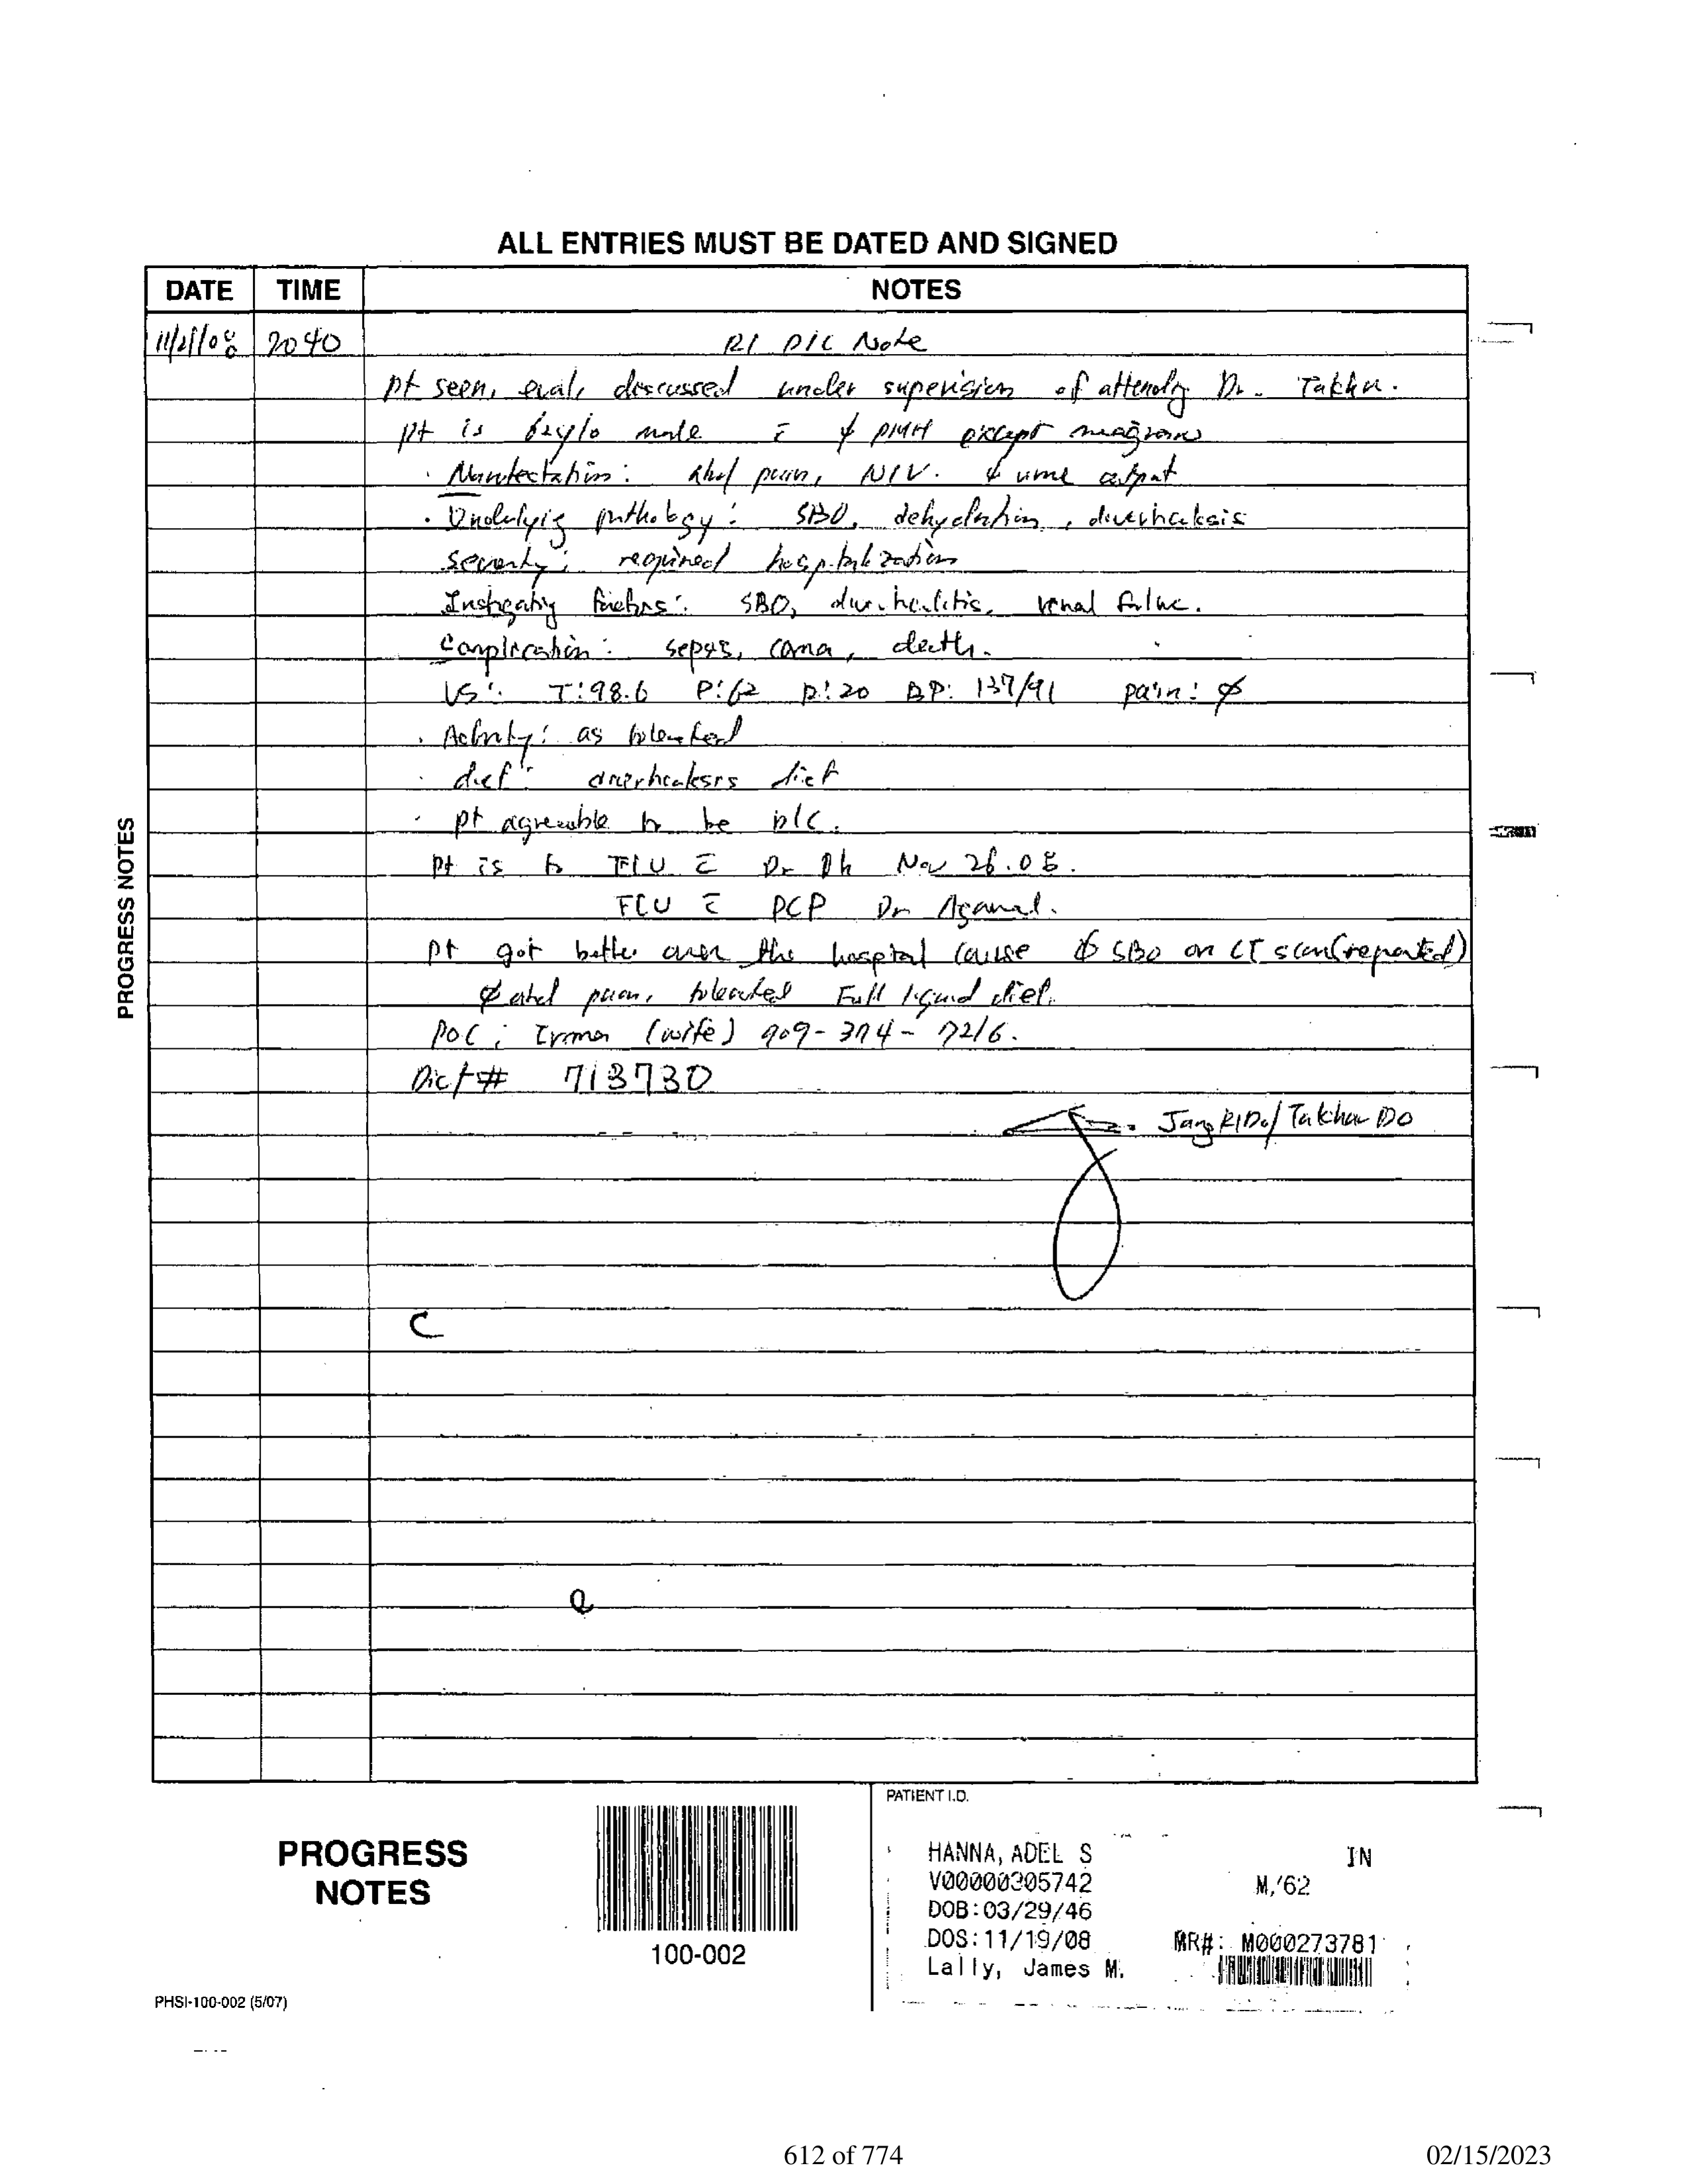 ALL ENTRIES MUST BE DATED AND SIGNED
DATE TIME NOTES
11/21/08 2040 R1 D/C Note
pt seen, eval, discussed under supervision of attending Dr. Takhar.
pt is 62 y/o male c̄ ∅ PMH except
· Manifestation: abd pain, N/V. ↓ urine output
· Underlying pathology: SBO, dehydration, diverticulosis
Severity: required hospitalization
Instigating factors: SBO, diverticulitis, renal failure.
Complication: sepsis, coma, death.
VS: T: 98.6 P: 62 R: 20 BP: 137/91 pain: ∅
· Activity: as tolerated
· diet: diverticulosis diet
· pt agreeable to be D/C.
pt is to F/U c̄ Dr Nov 26.08.
F/U c̄ PCP Dr Agarwal.
pt got better over the hospital course ∅ SBO on CT scan (repeated)
∅ abd pain, tolerated Full liquid diet.
POC: Irma (wife) 909-374-7216.
Dict# 713730
Jang R1 DO/ Takhar DO
C
PROGRESS NOTES
PROGRESS
NOTES
100-002
PHSI-100-002 (5/07)
PATIENT I.D.
HANNA, ADEL S IN
V00000305742 M/62
DOB:03/29/46
DOS:11/19/08 MR#: M000273781
Lally, James M.
612 of 774 02/15/2023